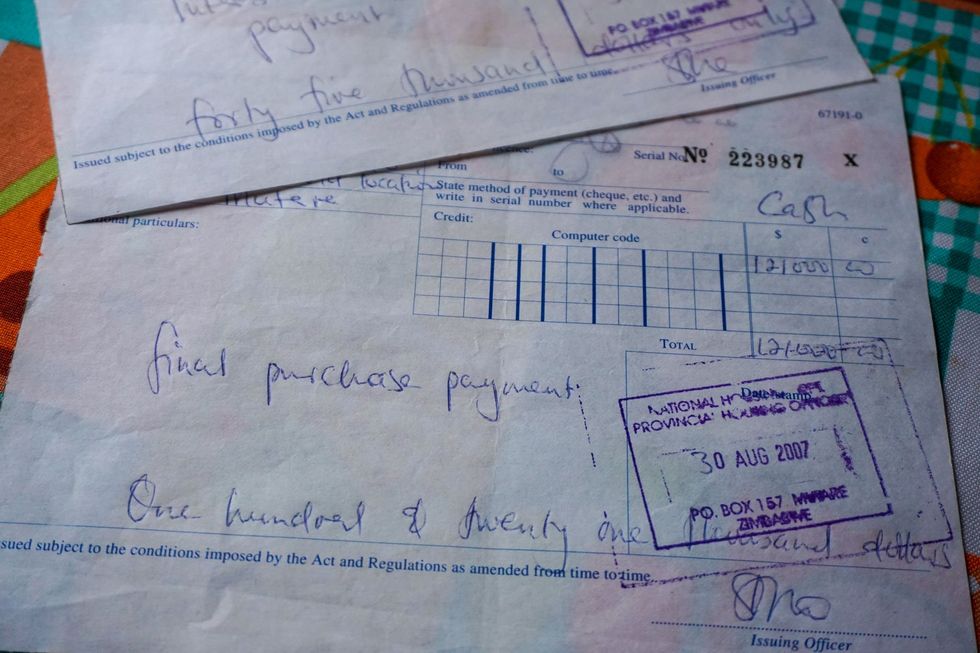 payment
PO. BOX 157 MVWARE
ZIMBABWE
forty five thousand dollars only
Issued subject to the conditions imposed by the Act and Regulations as amended from time to time.
Issuing Officer
67191-0
From
to
Serial No. Nº 223987 X
location
State method of payment (cheque, etc.) and
write in serial number where applicable.
Cash
particulars:
Credit:
Computer code
$ c
121000 00
TOTAL
121000 00
final purchase payment
Date stamp
NATIONAL
PROVINCIAL HOUSING OFFICER
30 AUG 2007
PO. BOX 157 MVWARE
ZIMBABWE
One hundred & twenty one thousand dollars
sued subject to the conditions imposed by the Act and Regulations as amended from time to time.
Issuing Officer